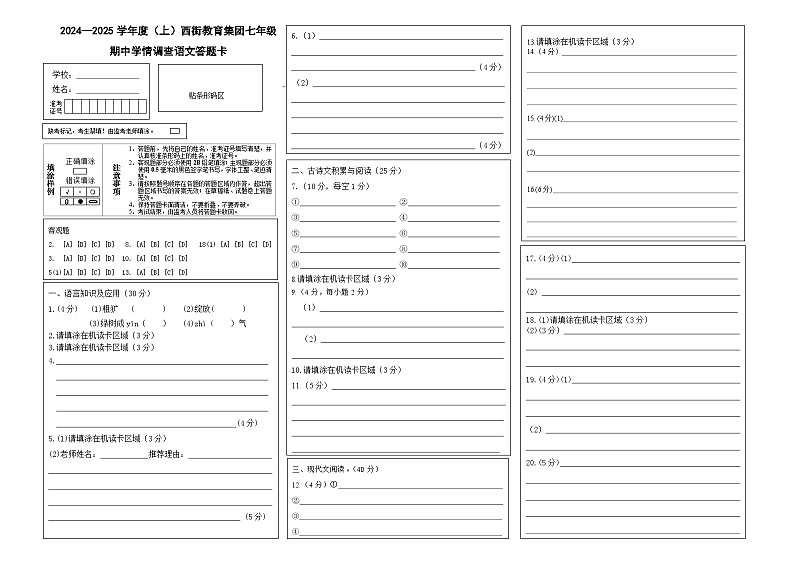 2024—2025 学年度（上）西街教育集团七年级
期中学情调查语文答题卡
学校：
姓名：
准考
证号
贴条形码区
缺考标记，考生禁填！由监考老师填涂。
填涂样例
正确填涂
错误填涂
注意事项
1、答题前，先将自己的姓名、准考证号填写清楚，并
认真核准条形码上的姓名、准考证号。
2、客观题部分必须使用 2B 铅笔填涂；主观题部分必须
使用 0.5 毫米的黑色签字笔书写，字体工整、笔迹清
楚。
3、请按照题号顺序在各题的答题区域内作答，超出答
题区域书写的答案无效；在草稿纸、试题卷上答题
无效。
4、保持答题卡面清洁，不要折叠、不要弄破。
5、考试结束，由监考人员将答题卡收回。
客观题
2. [A] [B] [C] [D] 8. [A] [B] [C] [D] 18(1) [A] [B] [C] [D]
3. [A] [B] [C] [D] 10. [A] [B] [C] [D]
5(1)[A] [B] [C] [D] 13. [A] [B] [C] [D]
一、语言知识及应用（30 分）
1.(4分) (1)粗犷 （ ） (2)绽放( )
(3)绿树成 yīn（ ） (4)zhì（ ）气
2.请填涂在机读卡区域(3 分)
3.请填涂在机读卡区域(3 分)
4.
(4 分)
5.(1)请填涂在机读卡区域(3 分)
(2)老师姓名：推荐理由：
(5 分)
6.（1）
（4 分）
（2）
（4 分）
二、古诗文积累与阅读(25 分)
7.（10 分，每空 1 分）
① ②
③ ④
⑤ ⑥
⑦ ⑧
⑨ ⑩
8.请填涂在机读卡区域（3 分）
9.（4 分，每小题 2 分）
（1）
（2）
10.请填涂在机读卡区域（3 分）
11.（5 分）
三、现代文阅读。(40 分)
12.（4 分）①
②
③
④
13.请填涂在机读卡区域(3 分)
14.(4 分)
15.(4 分)(1)
(2)
16(6分)
17.(4 分)(1)
(2)
18.(1)请填涂在机读卡区域(3 分)
(2)(3 分)
19.(4 分)(1)
（2）
20.(5 分)